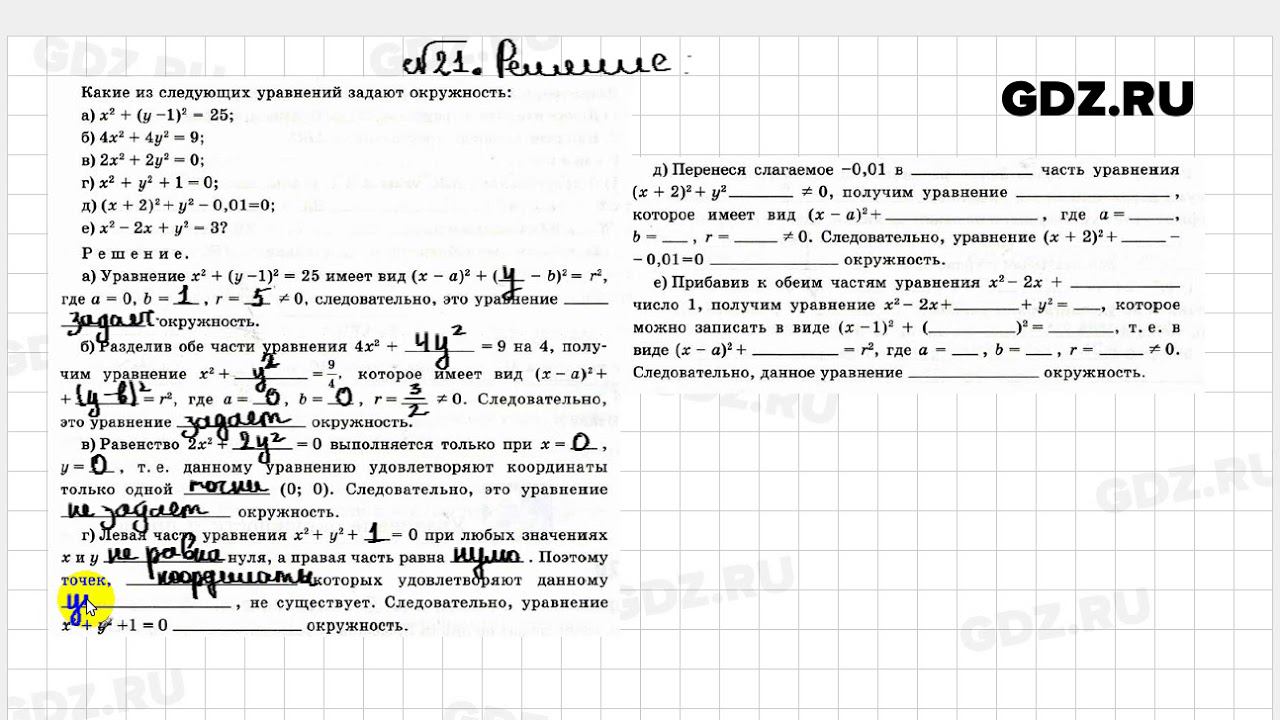 №21. Решение:
GDZ.RU
Какие из следующих уравнений задают окружность:
а) x² + (y −1)² = 25;
б) 4x² + 4y² = 9;
в) 2x² + 2y² = 0;
г) x² + y² + 1 = 0;
д) (x + 2)² + y² − 0,01=0;
е) x² − 2x + y² = 3?
Решение.
а) Уравнение x² + (y −1)² = 25 имеет вид (x − a)² + (y − b)² = r²,
где a = 0, b = 1 , r = 5 ≠ 0, следовательно, это уравнение
задает окружность.
б) Разделив обе части уравнения 4x² + 4y² = 9 на 4, полу-
чим уравнение x² + y² = 9/4, которое имеет вид (x − a)² +
+ (y − b)² = r², где a = 0, b = 0, r = 3/2 ≠ 0. Следовательно,
это уравнение задает окружность.
в) Равенство 2x² + 2y² = 0 выполняется только при x = 0 ,
y = 0 , т. е. данному уравнению удовлетворяют координаты
только одной точки (0; 0). Следовательно, это уравнение
не задает окружность.
г) Левая часть уравнения x² + y² + 1 = 0 при любых значениях
x и y не равна нуля, а правая часть равна нулю . Поэтому
точек, координаты которых удовлетворяют данному
у , не существует. Следовательно, уравнение
x² + y² +1 = 0 ____ окружность.
д) Перенеся слагаемое −0,01 в ____ часть уравнения
(x + 2)² + y² ____ ≠ 0, получим уравнение ____ ,
которое имеет вид (x − a)² + ____ , где a = ____,
b = ___ , r = ____ ≠ 0. Следовательно, уравнение (x + 2)² + ____ −
− 0,01=0 ____ окружность.
е) Прибавив к обеим частям уравнения x² − 2x + ____
число 1, получим уравнение x² − 2x + ____ + y² = ___, которое
можно записать в виде (x −1)² + (____)² = ____, т. е. в
виде (x − a)² + ____ = r², где a = ___ , b = ___ , r = ____ ≠ 0.
Следовательно, данное уравнение ____ окружность.